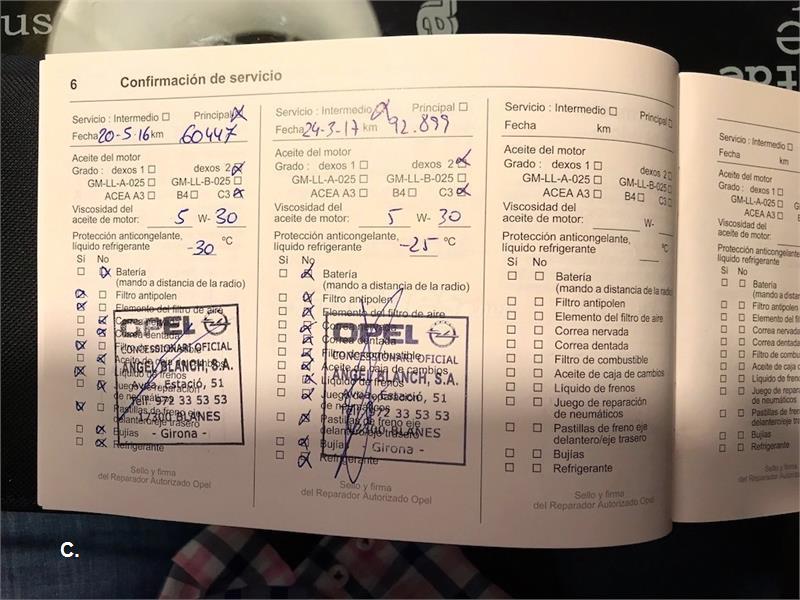 us
6 Confirmación de servicio
Servicio : Intermedio ☐ Principal ☒
Fecha 20-5-16 km 60447
Aceite del motor
Grado : dexos 1 ☐ dexos 2 ☒
GM-LL-A-025 ☐ GM-LL-B-025 ☐
ACEA A3 ☐ B4 ☐ C3 ☒
Viscosidad del
aceite de motor: 5 W- 30
Protección anticongelante,
líquido refrigerante -30 °C
Sí No
☐ ☒ Batería
(mando a distancia de la radio)
☒ ☐ Filtro antipolen
☒ ☐ Elemento del filtro de aire
OPEL
CONCESSIONARI OFICIAL
ANGEL BLANCH, S.A.
Av. Estació, 51
Tel. 972 33 53 53
17300 BLANES
- Girona -
☐ ☒ Bujías
☐ ☒ Refrigerante
Sello y firma
del Reparador Autorizado Opel
Servicio : Intermedio ☒ Principal ☐
Fecha 24-3-17 km 92.899
Aceite del motor
Grado : dexos 1 ☐ dexos 2 ☒
GM-LL-A-025 ☐ GM-LL-B-025 ☐
ACEA A3 ☐ B4 ☐ C3 ☒
Viscosidad del
aceite de motor: 5 W- 30
Protección anticongelante,
líquido refrigerante -25 °C
Sí No
☐ ☒ Batería
(mando a distancia de la radio)
☐ ☒ Filtro antipolen
☐ ☒ Elemento del filtro de aire
OPEL
CONCESSIONARI OFICIAL
ANGEL BLANCH, S.A.
Av. Estació, 51
972 33 53 53
17300 BLANES
- Girona -
☐ ☒ Bujías
☐ ☒ Refrigerante
Sello y firma
del Reparador Autorizado Opel
Servicio : Intermedio ☐ Principal ☐
Fecha km
Aceite del motor
Grado : dexos 1 ☐ dexos 2 ☐
GM-LL-A-025 ☐ GM-LL-B-025 ☐
ACEA A3 ☐ B4 ☐ C3 ☐
Viscosidad del
aceite de motor: W-
Protección anticongelante,
líquido refrigerante °C
Sí No
☐ ☐ Batería
(mando a distancia de la radio)
☐ ☐ Filtro antipolen
☐ ☐ Elemento del filtro de aire
☐ ☐ Correa nervada
☐ ☐ Correa dentada
☐ ☐ Filtro de combustible
☐ ☐ Aceite de caja de cambios
☐ ☐ Líquido de frenos
☐ ☐ Juego de reparación
de neumáticos
☐ ☐ Pastillas de freno eje
delantero/eje trasero
☐ ☐ Bujías
☐ ☐ Refrigerante
Sello y firma
del Reparador Autorizado Opel
Servicio : Intermedio ☐
Fecha km
Aceite del motor
Grado : dexos 1 ☐
GM-LL-A-025 ☐
ACEA A3 ☐
Viscosidad del
aceite de motor:
Protección anticongelante,
líquido refrigerante
Sí No
☐ ☐ Batería
(mando a distan
☐ ☐ Filtro antipolen
☐ ☐ Elemento del filtro
☐ ☐ Correa nervada
☐ ☐ Correa dentada
☐ ☐ Filtro de combust
☐ ☐ Aceite de caja de
☐ ☐ Líquido de frenos
☐ ☐ Juego de repara
de neumáticos
☐ ☐ Pastillas de freno
delantero/eje tras
☐ ☐ Bujías
☐ ☐ Refrigerante
Sello y firma
del Reparador Autoriz
C.